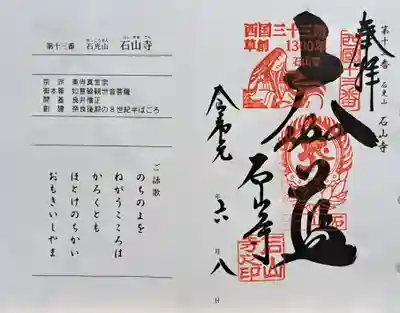 第十三番 石光山 石山寺
宗派 東寺真言宗
御本尊 如意輪観世音菩薩
開基 良弁僧正
創建 奈良後期の8世紀半ばごろ
ご詠歌
のちのよを
ねがうこころは
かろくとも
ほとけのちかい
おもきいしやま
第十三番 石光山 石山寺
奉拝
西国十三番
西国三十三所
草創1300年
石山寺
石山寺
令和元年六月八日